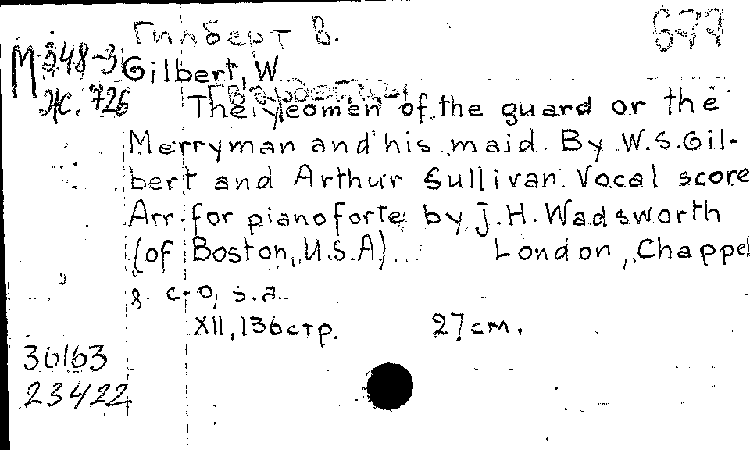 Гилберт В.
677
М 248-3
Gilbert, W.
Ж. 726
The yeomen of the guard or the
Merryman and his maid. By W.S. Gil-
bert and Arthur Sullivan. Vocal score
Arr. for pianoforte by J.H. Wadsworth
(of Boston, U.S.A)... London, Chappel
& C-o, s.a.
XII, 136 стр. 27 см.
30163
23422